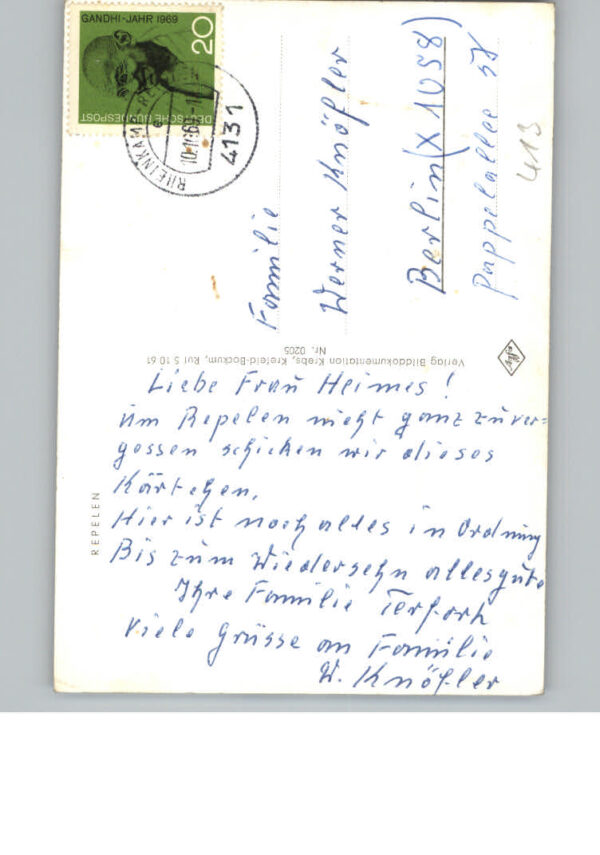 GANDHI-JAHR 1969
20
DEUTSCHE BUNDESPOST
RHEINKAMP-RE
e
10.10.69-1
4131
Familie
Werner Knößler
Berlin (X 1058)
Pappelallee 38
413
Verlag Bilddokumentation Krebs, Krefeld-Bockum, Ruf 5 10 61
Nr. 0205
Agfa
REPELEN
Liebe Frau Heimes!
Um Repelen nicht ganz zuver=
gessen schicken wir dieses
Kärtchen.
Hier ist noch alles in Ordnung
Bis zum Wiedersehn alles gute
Ihre Familie Terforth
Viele Grüsse an Familie
W. Knößler